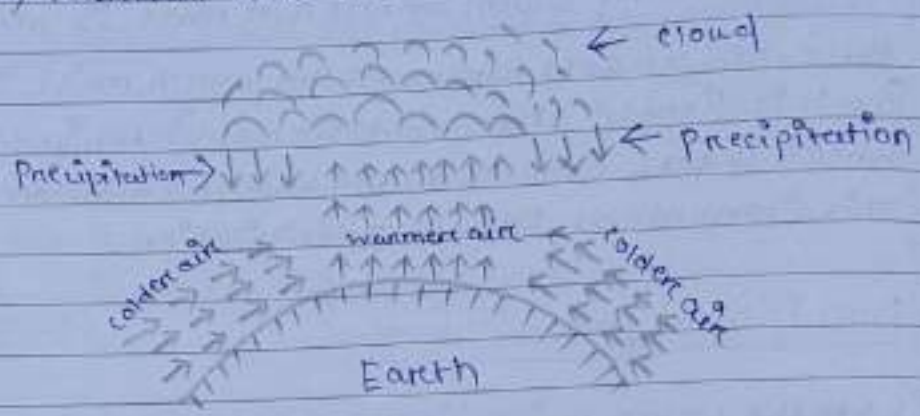 cloud
Precipitation
Precipitation
warmer air
colder air
colder air
Earth